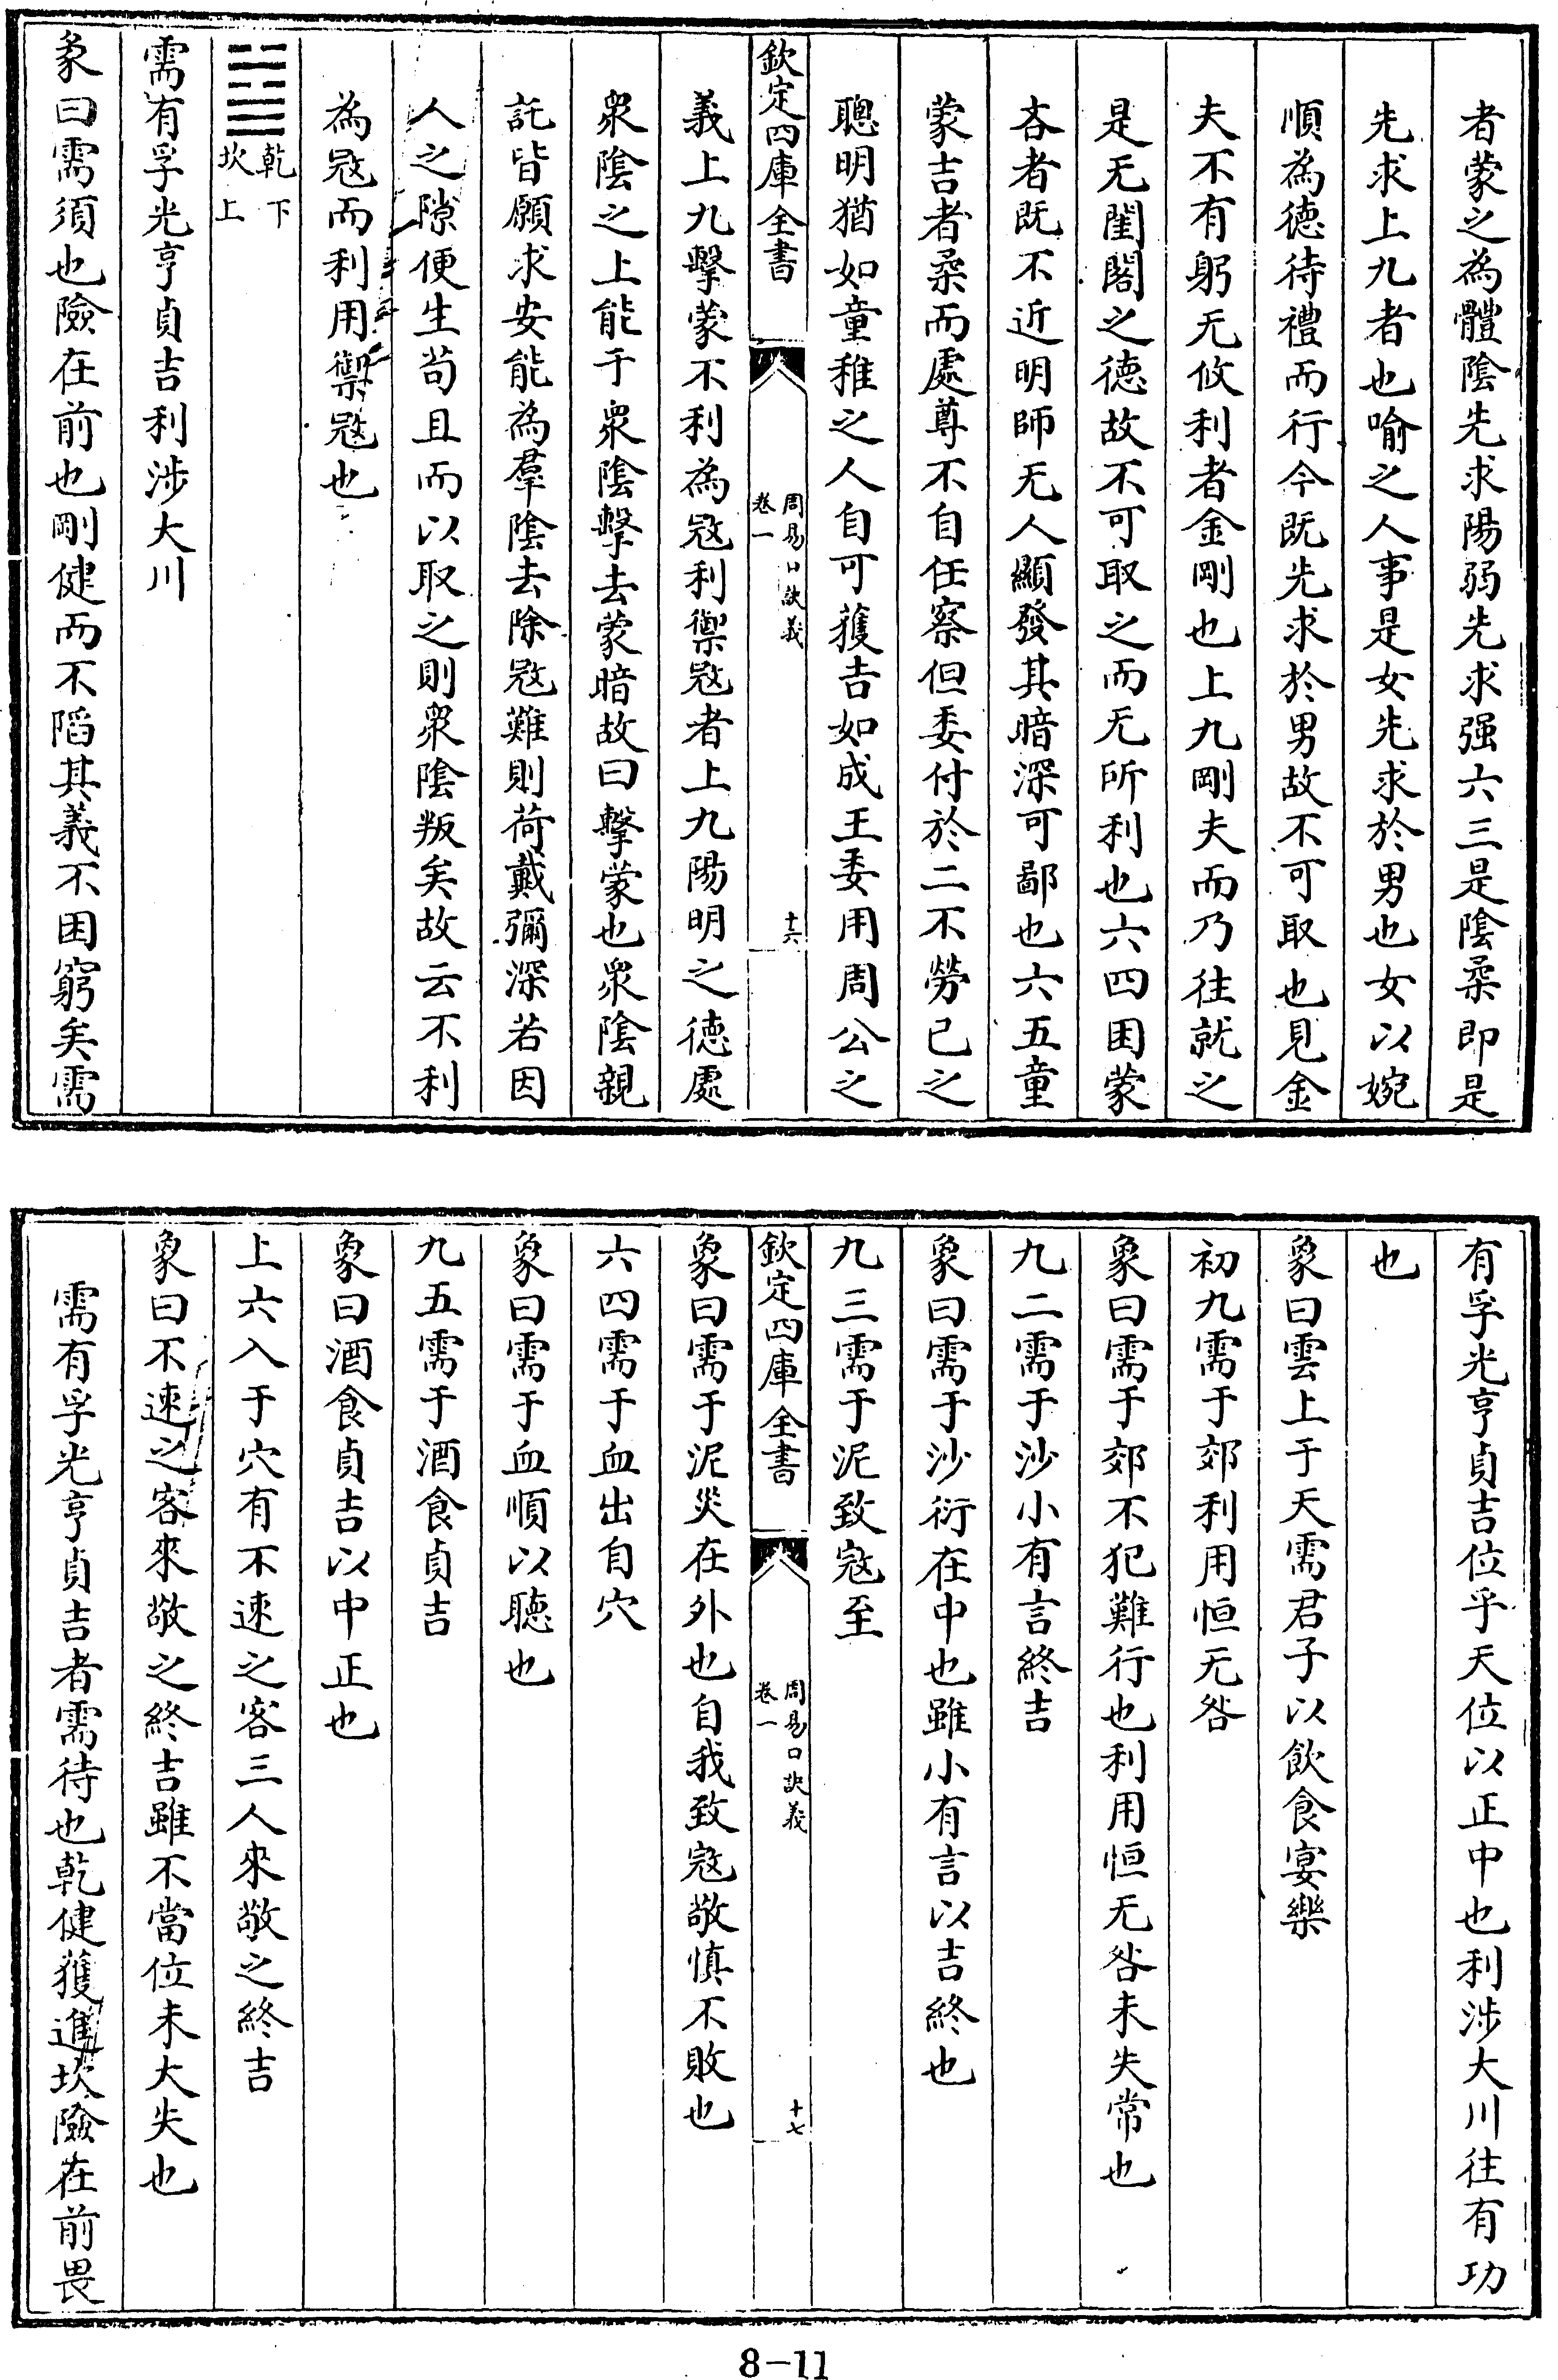 者蒙之為體陰先求陽弱先求强六三是陰柔即是
先求上九者也喻之人事是女先求於男也女以婉
順為德待禮而行今既先求於男故不可取也見金
夫不有躬无攸利者金剛也上九剛夫而乃往就之
是无閨閤之德故不可取之而无所利也六四困蒙
吝者既不近明師无人顯發其暗深可鄙也六五童
蒙吉者柔而處尊不自任察但委付於二不勞已之
聰明猶如童稚之人自可獲吉如成王委用周公之
欽定四庫全書
周易口訣義
卷一
十六
義上九擊蒙不利為冦利禦冦者上九陽明之德處
衆陰之上能于衆陰擊去蒙暗故曰擊蒙也衆陰親
託皆願求安能為羣陰去除冦難則荷戴彌深若因
人之隙便生苟且而以取之則衆陰叛矣故云不利
為冦而利用禦冦也
䷄
乾下
坎上
需有孚光亨貞吉利涉大川
彖曰需須也險在前也剛健而不陷其義不困窮矣需
有孚光亨貞吉位乎天位以正中也利涉大川往有功
也
象曰雲上于天需君子以飲食宴樂
初九需于郊利用恒无咎
象曰需于郊不犯難行也利用恒无咎未失常也
九二需于沙小有言終吉
象曰需于沙衍在中也雖小有言以吉終也
九三需于泥致寇至
欽定四庫全書
周易口訣義
卷一
十七
象曰需于泥災在外也自我致寇敬慎不敗也
六四需于血出自穴
象曰需于血順以聽也
九五需于酒食貞吉
象曰酒食貞吉以中正也
上六入于穴有不速之客三人來敬之終吉
象曰不速之客來敬之終吉雖不當位未大失也
需有孚光亨貞吉者需待也乾健獲進坎險在前畏
8-11